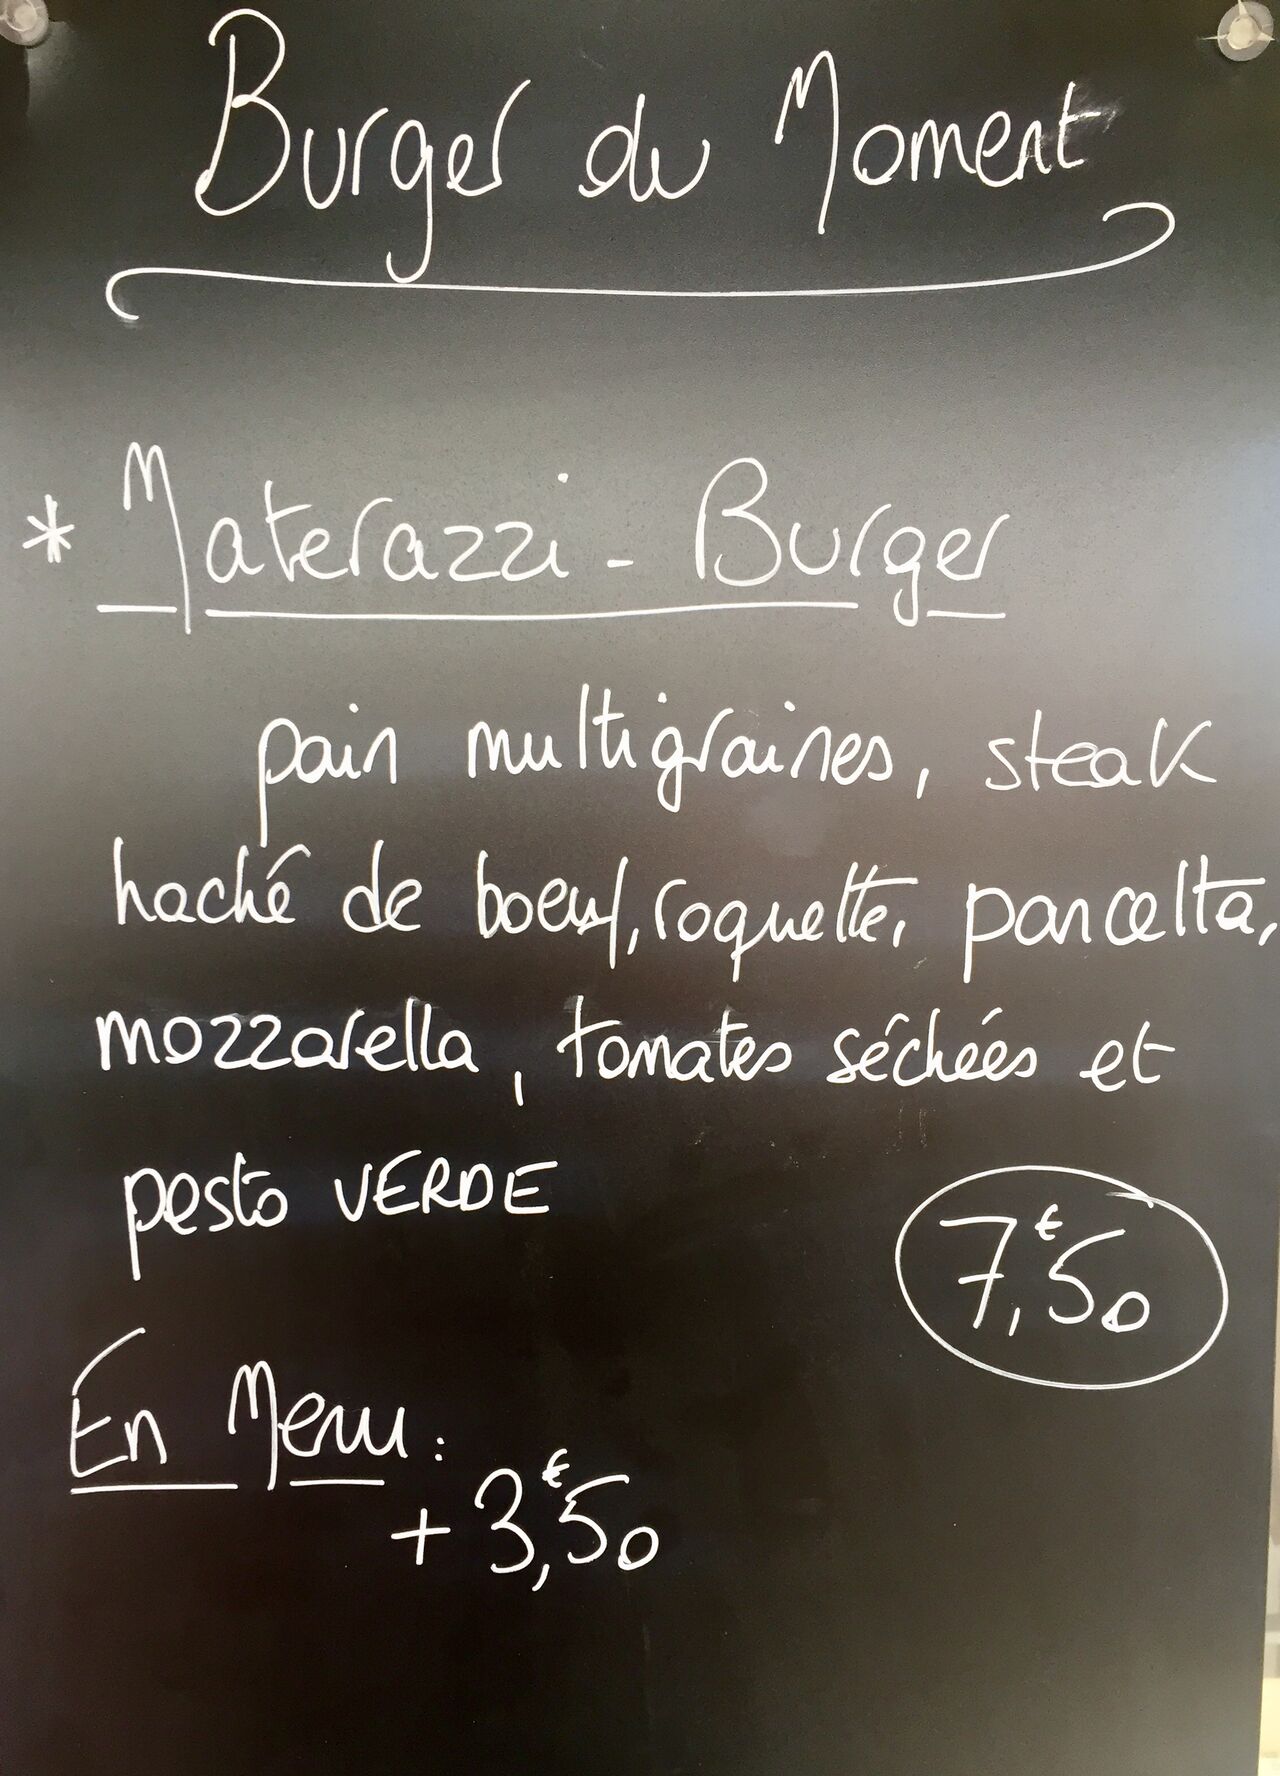 Burger du Moment
* Materazzi - Burger
pain multigraines, steak
haché de boeuf, roquette, pancelta,
mozzarella, tomates séchées et
pesto VERDE
7,€50
En Menu :
+ 3,€50